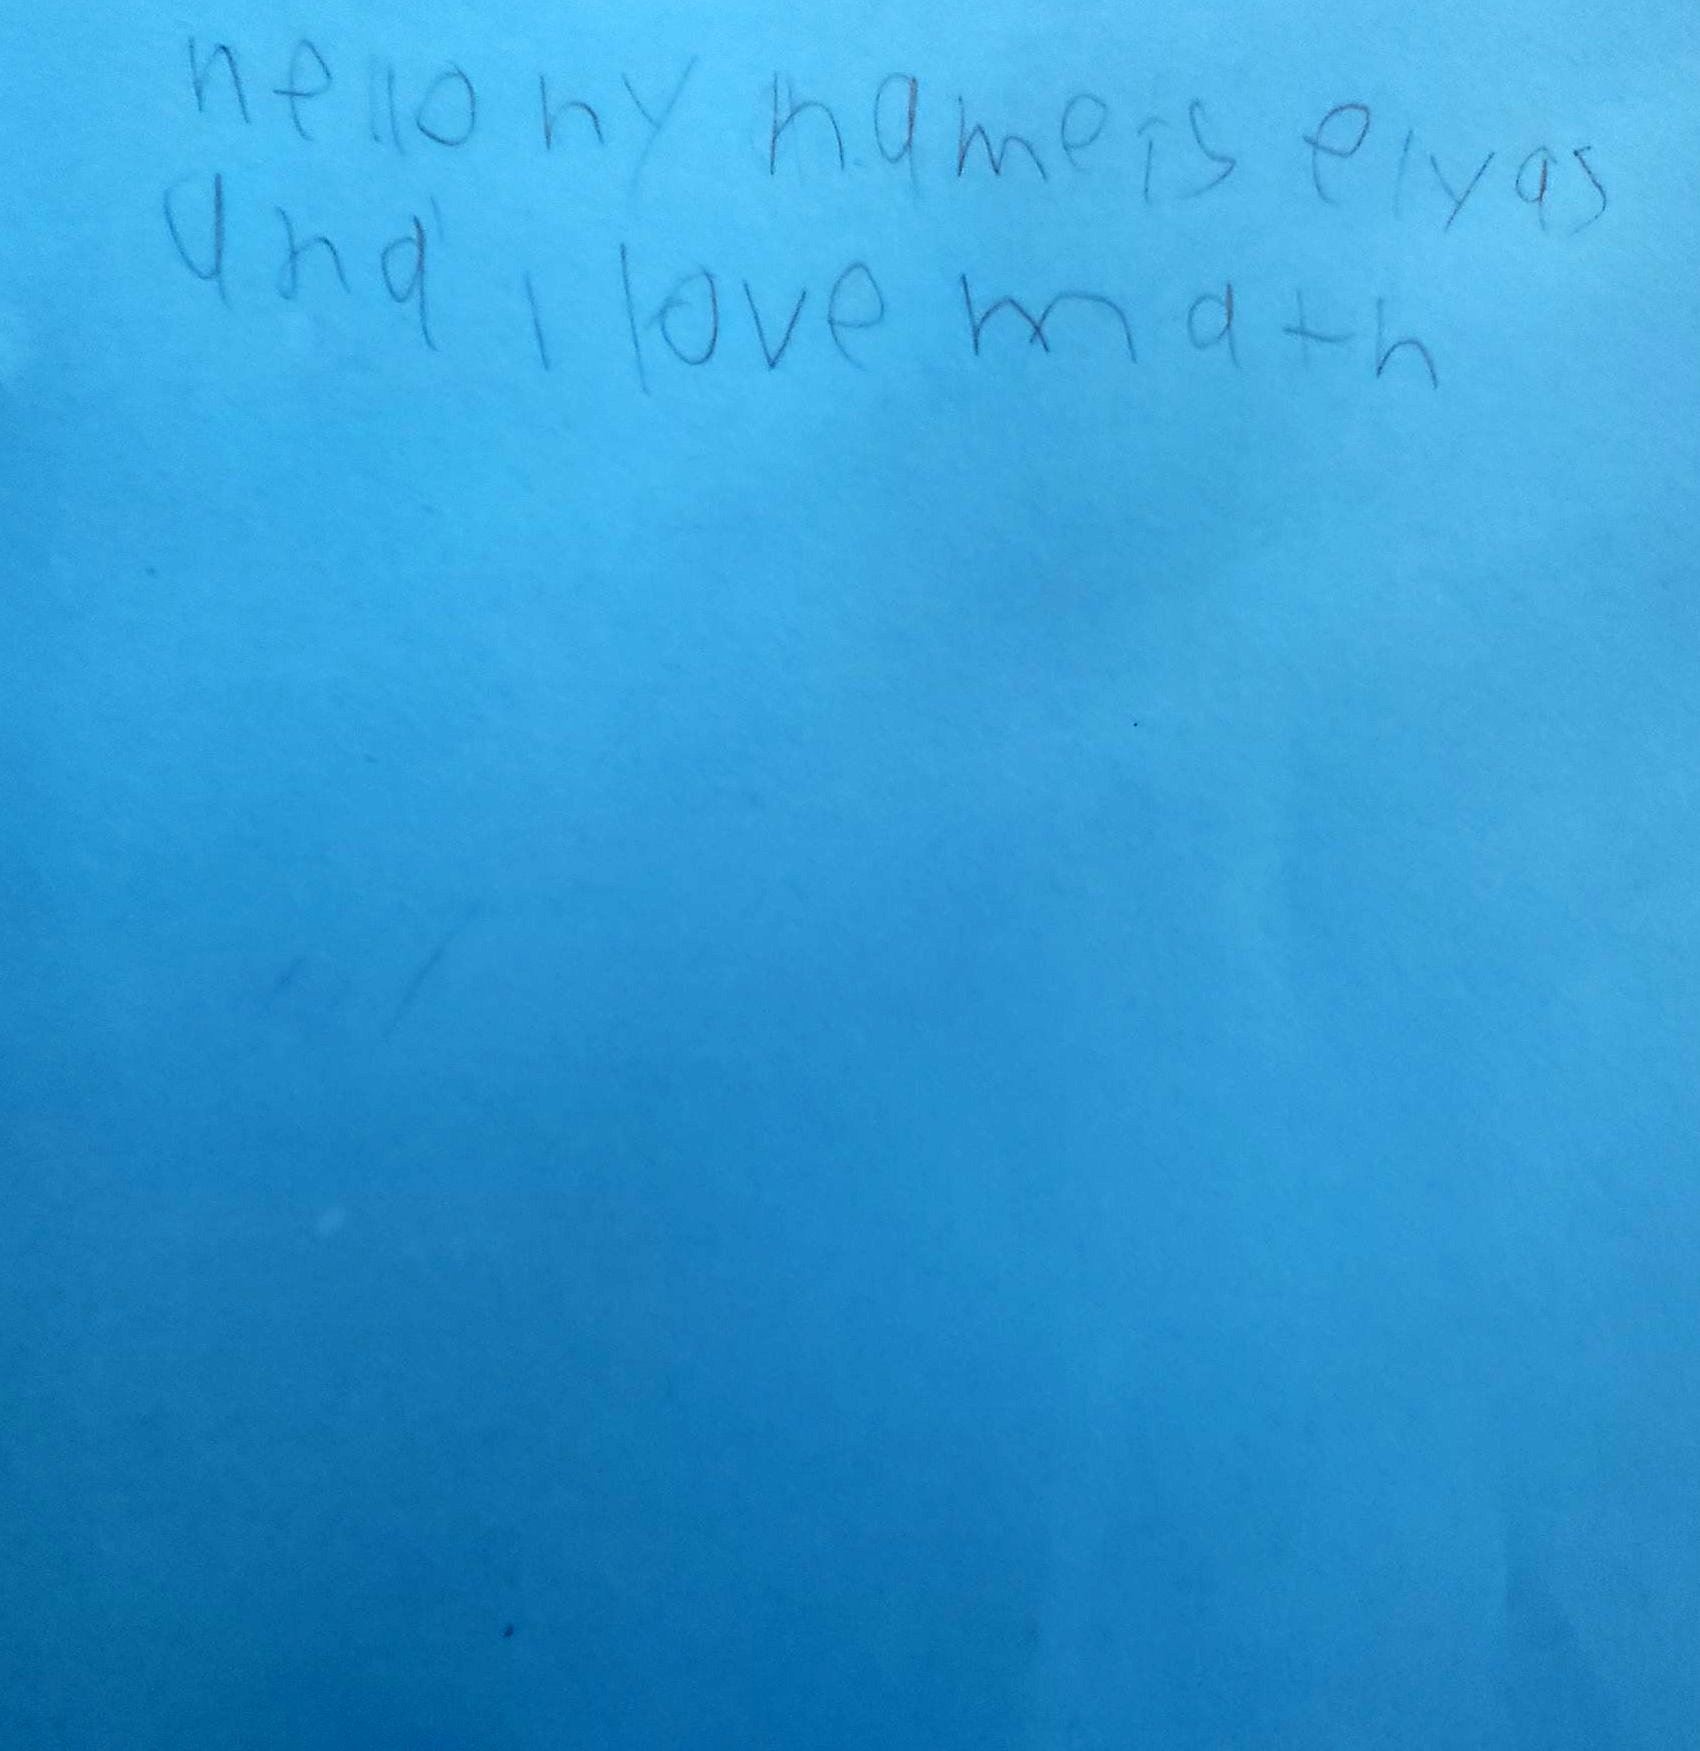 hello my name is elyas
and i love math